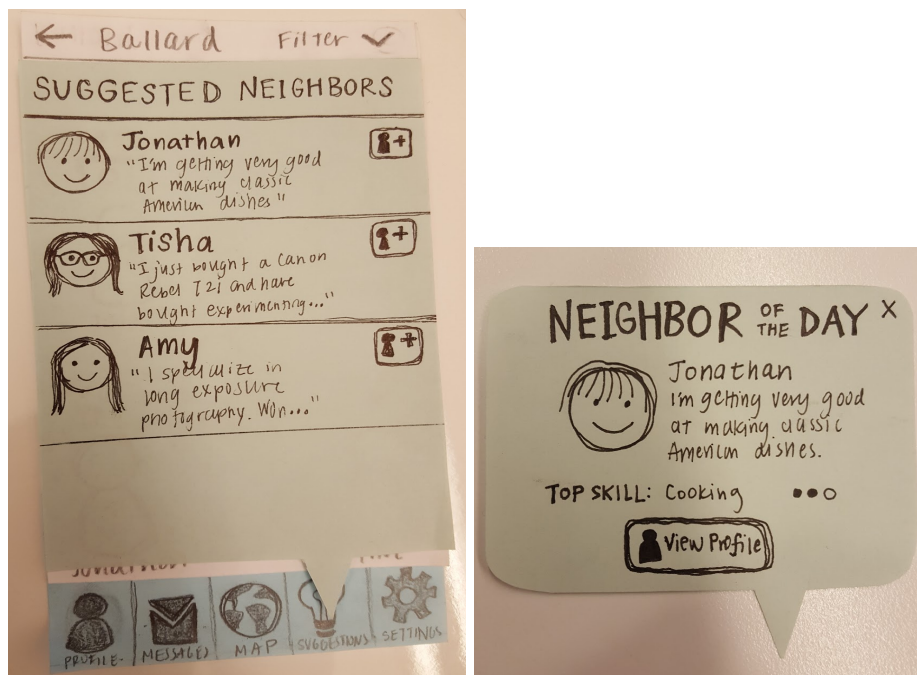 ← Ballard Filter
SUGGESTED NEIGHBORS
Jonathan
"I'm getting very good
at making classic
American dishes"
Tisha
"I just bought a Canon
Rebel T2i and have
bought experimenting..."
Amy
"I specialize in
long exposure
photography. Won..."
PROFILE
MESSAGES
MAP
SUGGESTIONS
SETTINGS
NEIGHBOR OF THE DAY X
Jonathan
I'm getting very good
at making classic
American dishes.
TOP SKILL: Cooking
View Profile